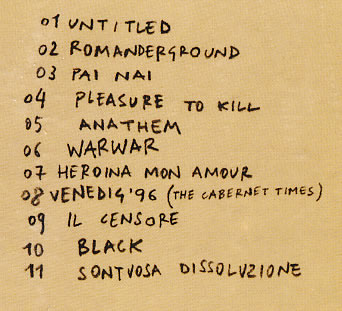 01 UNTITLED
02 ROMANDERGROUND
03 PAI NAI
04 PLEASURE TO KILL
05 ANATHEM
06 WARWAR
07 HEROINA MON AMOUR
08 VENEDIG '96 (THE CABERNET TIMES)
09 IL CENSORE
10 BLACK
11 SONTUOSA DISSOLUZIONE